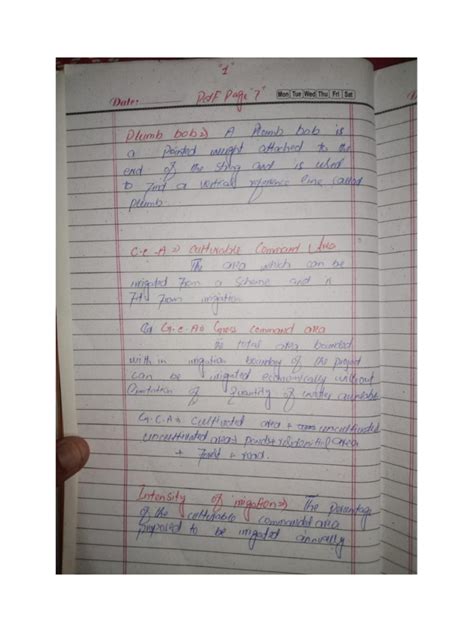 "1"
Date: PdF Page "7" Mon Tue Wed Thu Fri Sat
Plumb bob => A Plumb bob is
a pointed weight attached to the
end of the string and is used
to find a vertical reference line called
plumb.
C.C.A => Culturable Command Area
The area which can be
irrigated from a scheme and is
fit from irrigation
G.C.A => Gross command area
is total area bounded
with in irrigation boundary of the project
can be irrigated economically without
of quantity of water available
G.C.A = cultivated area + uncultivated
uncultivated area = ponds + residential area
+ road.
Intensity of irrigation => The percentage
of the culturable commanded area
proposed to be irrigated annually